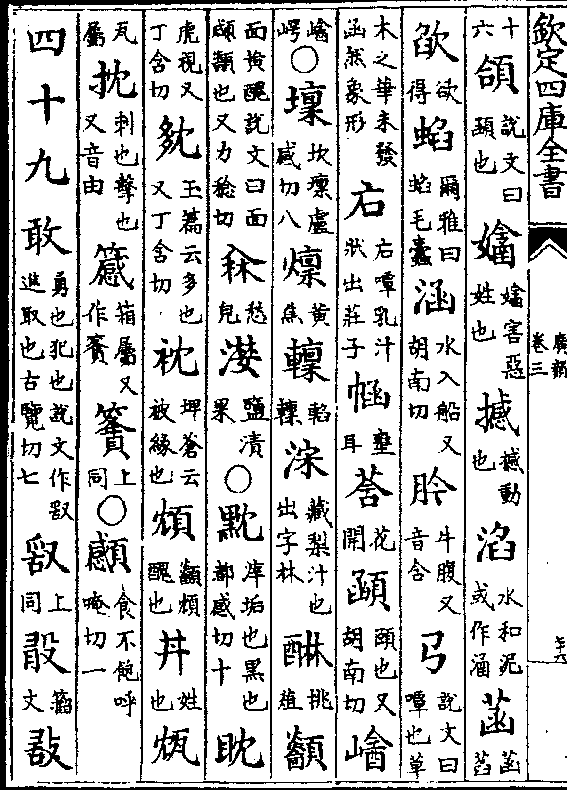 欽定四庫全書 廣韻 卷三
十六頜說文曰頤也嬒嬒害惡姓也撼撼動也淊水和泥或作涵菡菡萏
欿欲得蜭爾雅曰蜭毛蠹涵水入船又胡南切肣牛腹又音含弓說文曰嘾也草
木之華未發函然象形右右嘾乳汁狀出莊子㡔壅耳莟花開顄頤也又胡南切嶖
嶖崿○壈坎壈盧感切八燣黃焦轥䡪轥浨藏梨汁也出字林醂桃葅顲
面㿧醜說文曰面顑顲也又力稔切㾕愁皃灠鹽漬果○黕滓垢也黑也都感切十眈
虎視又丁含切㲳玉篇云多也又丁含切衴埤蒼云被緣也煩顲煩醜也丼姓也瓭
瓦屬抌刺也擊也又音由簽箱屬又作䉡䉡上同○顑食不飽呼唵切一
四十九敢勇也犯也說文作𠭖進取也古覽切七𠭖上同㪉籀文敢